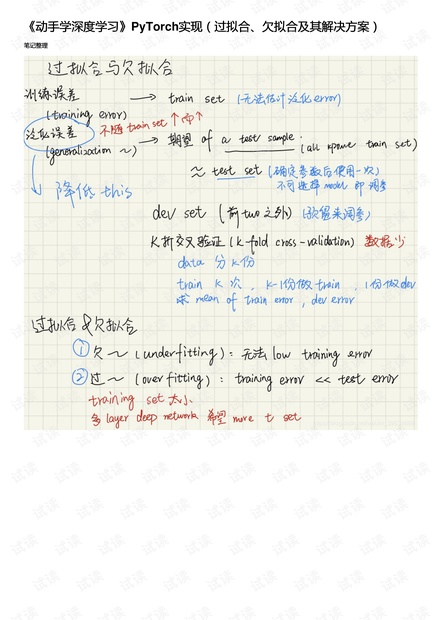 《动手学深度学习》PyTorch实现（过拟合、欠拟合及其解决方案）
笔记整理
过拟合与欠拟合
训练误差 → train set (无法估计泛化error)
(training error)
不随train set↑而↓
泛化误差 → 期望 of a test sample.
(generalization ~) (all xpowe train set)
≈ test set (确定参数后使用一次)
不可选择model 即 调参
降低 this
dev set (前two之外) (预留来调参)
K折交叉验证 (k-fold cross-validation) 数据少
data 分 K份
train K 次, K-1份做train, 1份做dev
求 mean of train error, dev error
过拟合 & 欠拟合
① 欠~ (underfitting): 无法 low training error
② 过~ (overfitting): training error << test error
training set 太小
多 layer deep network 希望 more t set